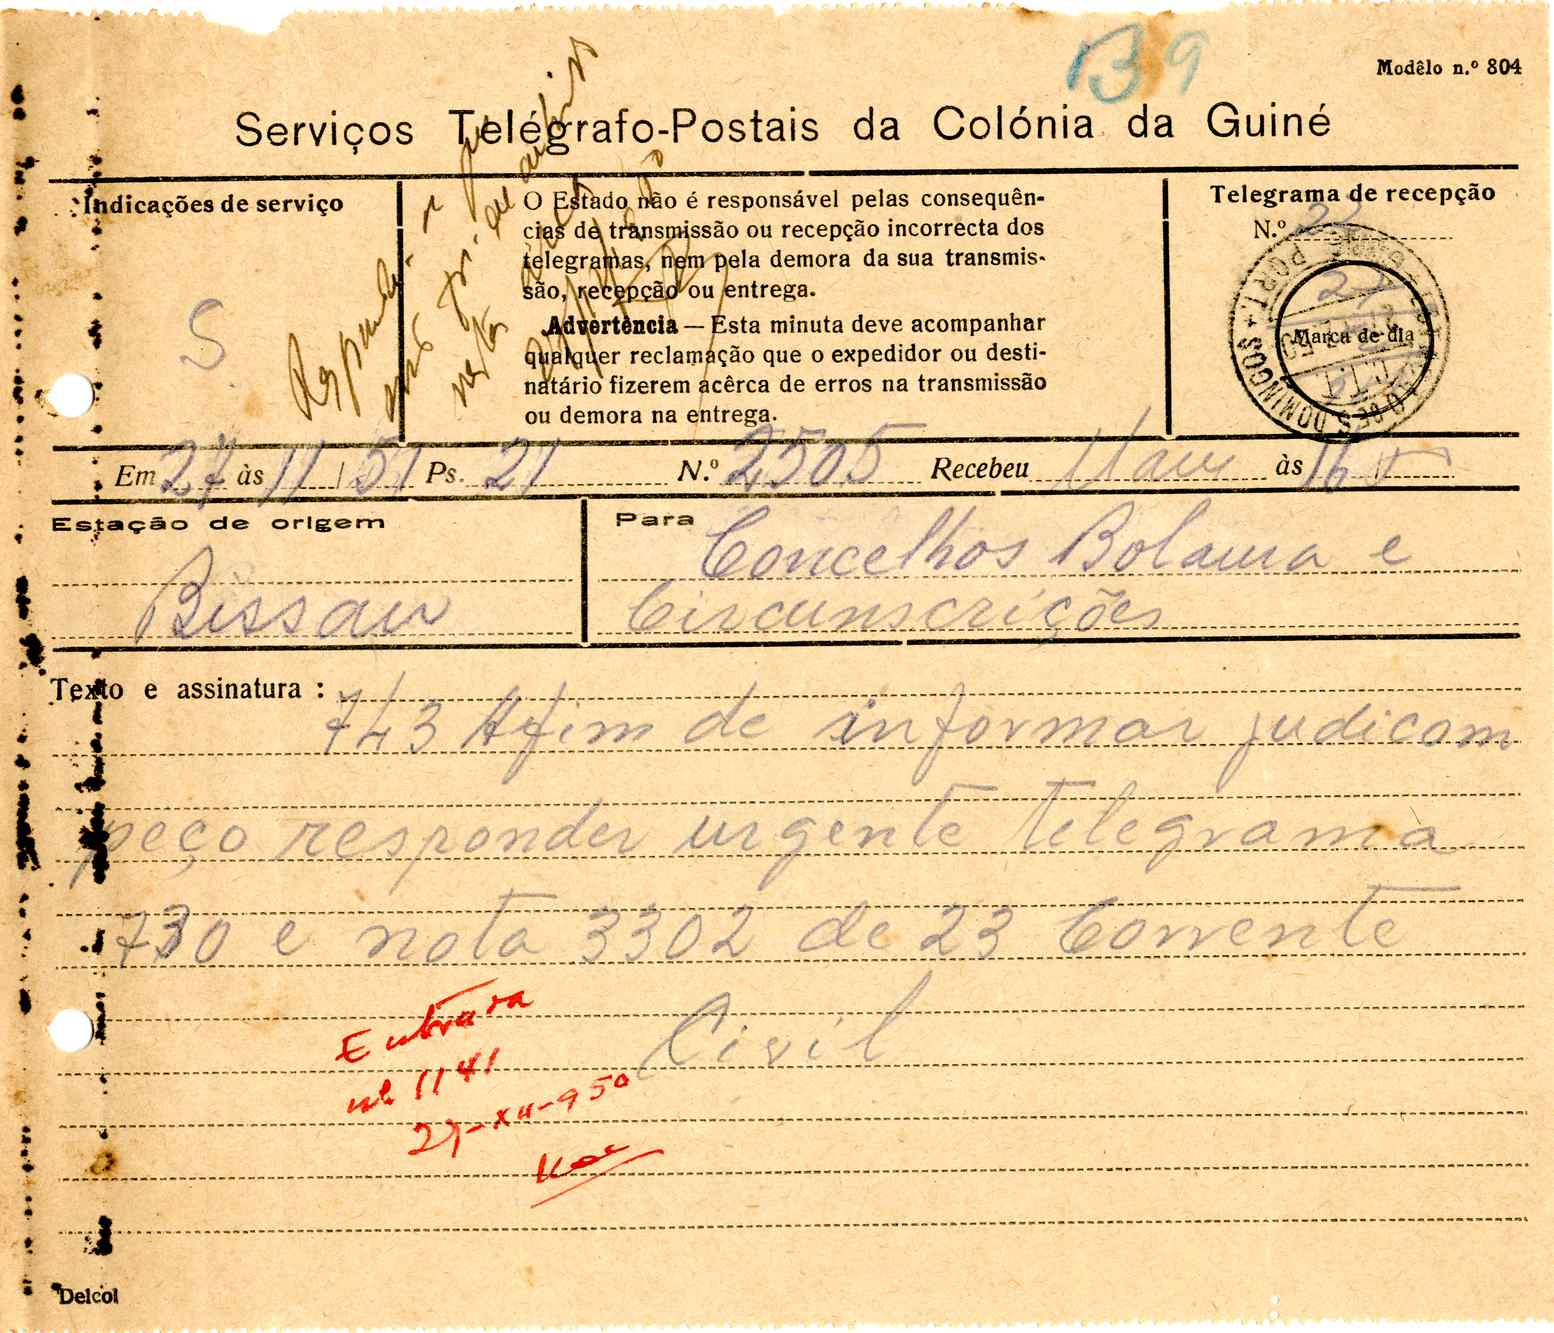 B9
Modêlo n.º 804
Serviços Telégrafo-Postais da Colónia da Guiné
Indicações de serviço
S
O Estado não é responsável pelas consequên-
cias de transmissão ou recepção incorrecta dos
telegramas, nem pela demora da sua transmis-
são, recepção ou entrega.
Advertência — Esta minuta deve acompanhar
qualquer reclamação que o expedidor ou desti-
natário fizerem acêrca de erros na transmissão
ou demora na entrega.
Telegrama de recepção
N.º 22
Marca de dia
Em 27 às 11/51 Ps. 21 N.º 2505 Recebeu às 16
Estação de origem
Bissau
Para
Concelhos Bolama e
Circunscrições
Texto e assinatura :
743 Afim de informar judicom
peço responder urgente telegrama
730 e nota 3302 de 23 Corrente
Civil
Entrara
nº. 1141
27-XII-950
Delcol